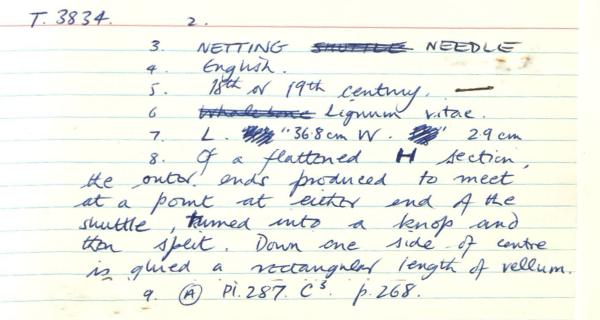 T. 3834. 2.
3. NETTING SHUTTLE NEEDLE
4. English.
5. 18th or 19th century. —
6 Whalebone Lignum vitae.
7. L. " 36.8cm W. 2.9cm
8. Of a flattened H section,
the outer ends produced to meet
at a point at either end of the
shuttle, turned into a knop and
then split. Down one side of centre
is glued a rectangular length of vellum.
9. (A) Pl. 287. C³. p.268.